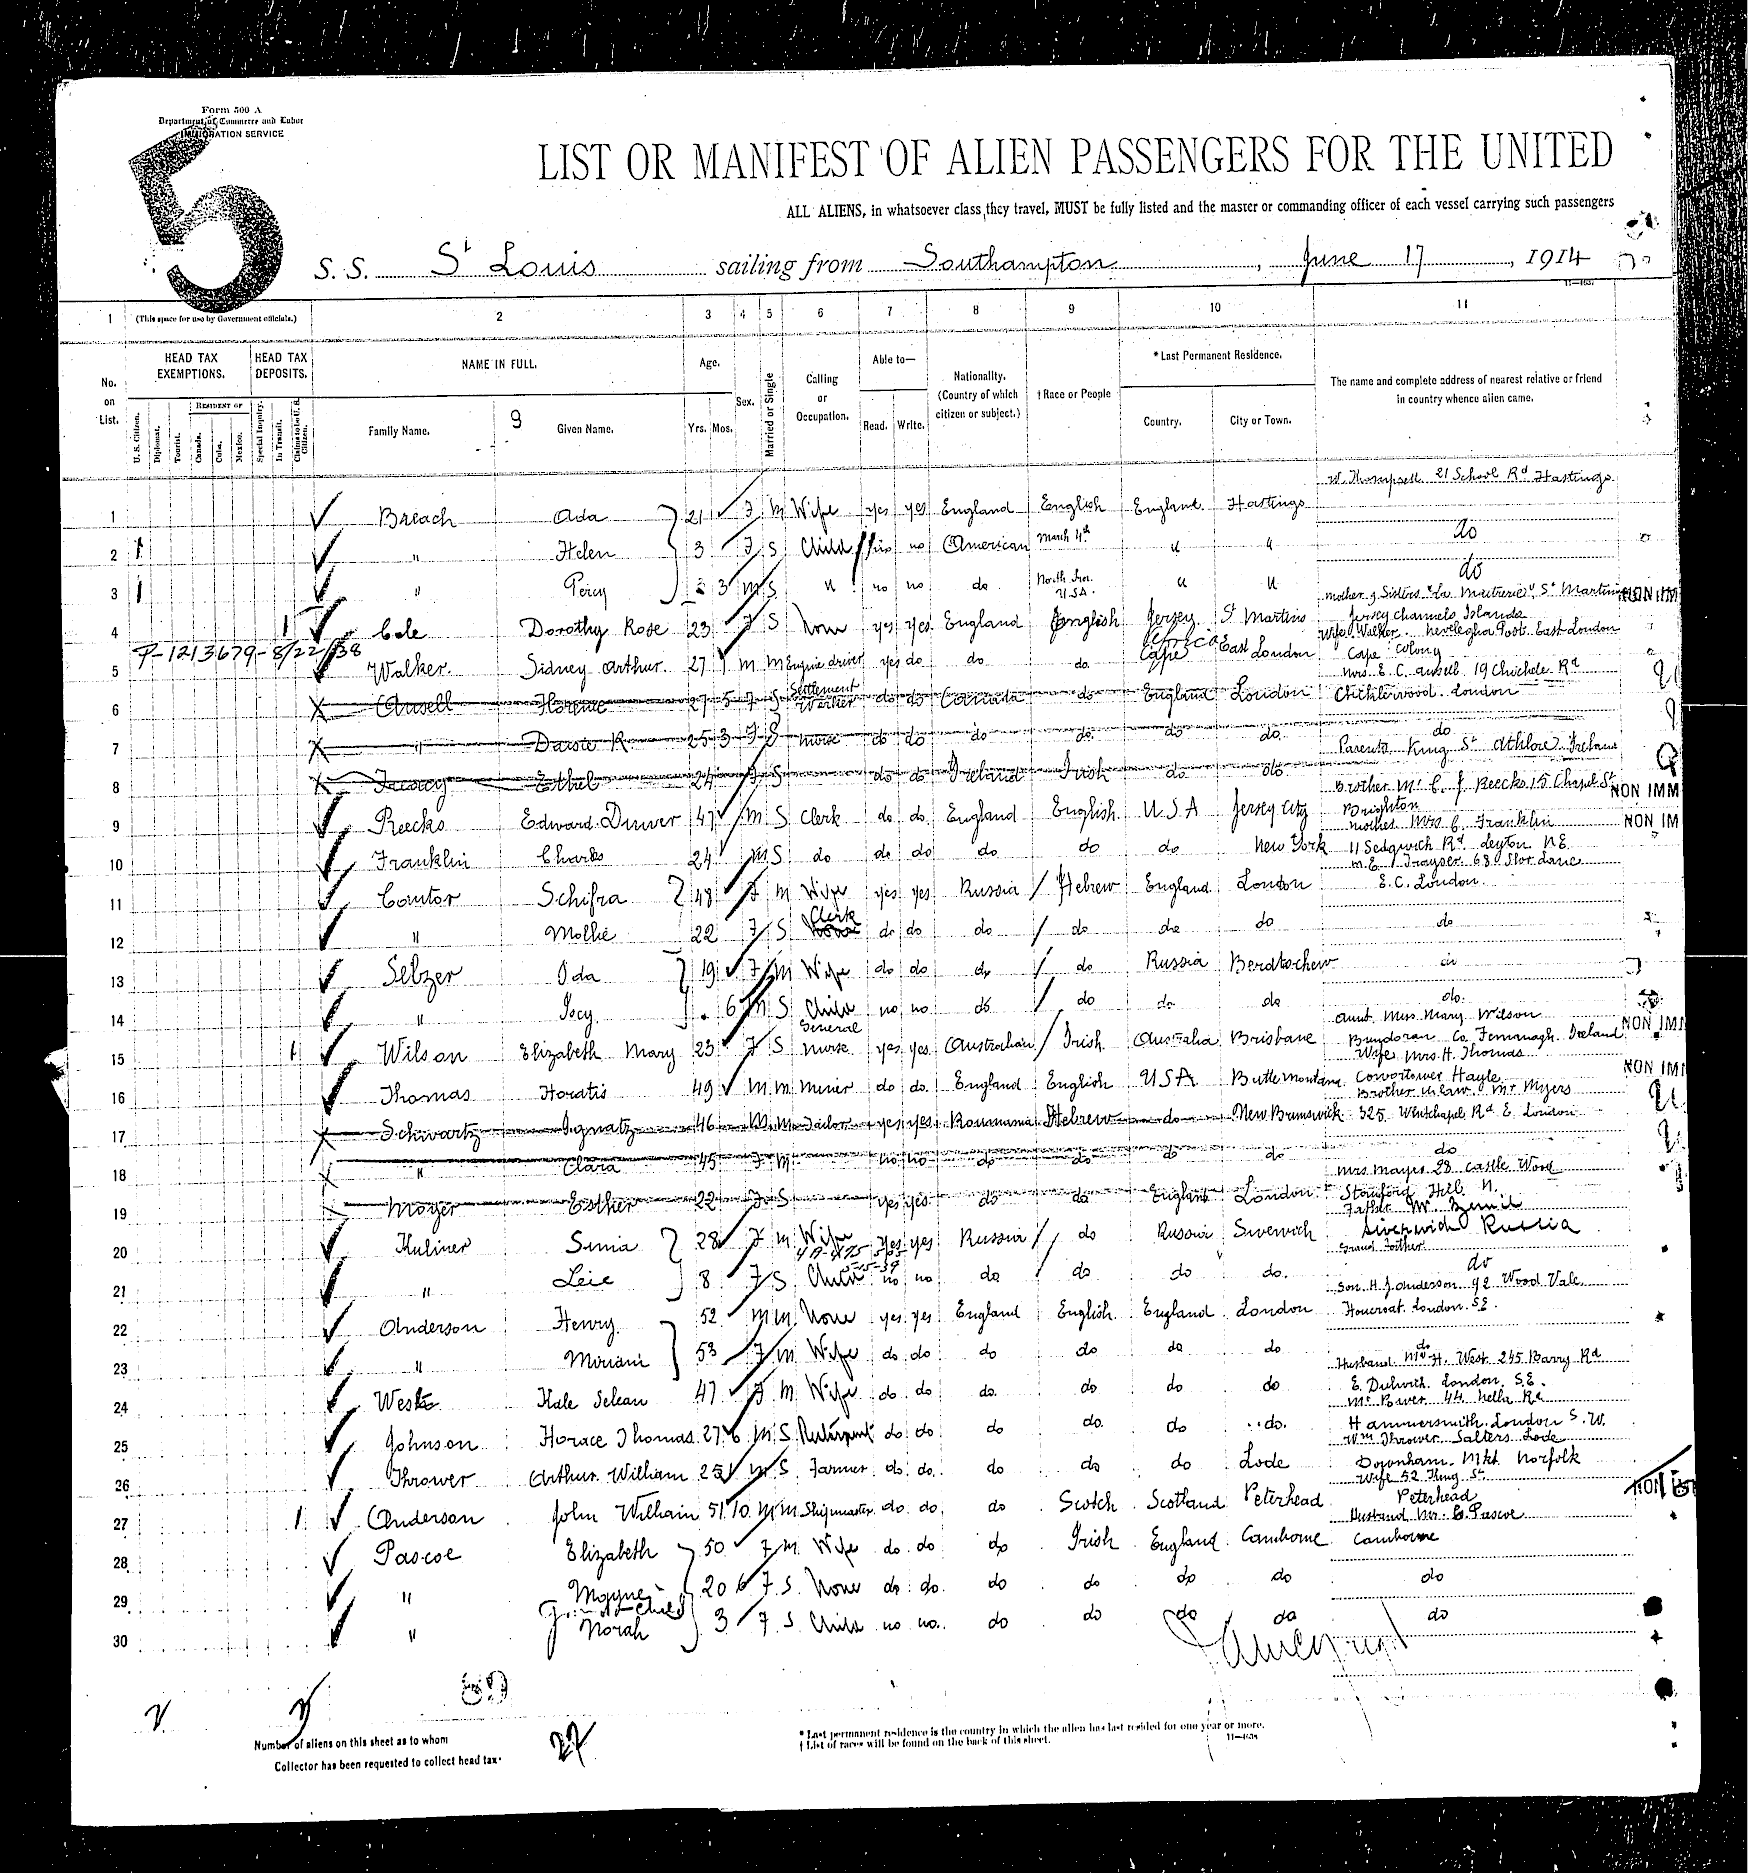 Form 500 A
Department of Commerce and Labor
IMMIGRATION SERVICE
5
LIST OR MANIFEST OF ALIEN PASSENGERS FOR THE UNITED
ALL ALIENS, in whatsoever class they travel, MUST be fully listed and the master or commanding officer of each vessel carrying such passengers
S. S. St Louis sailing from Southampton, June 17, 1914
1 (This space for use by Government officials.) 2 3 4 5 6 7 8 9 10 11
No. on List.
HEAD TAX EXEMPTIONS. HEAD TAX DEPOSITS.
U. S. Citizen. Diplomat. Tourist. RESIDENT OF Canada. Cuba. Mexico. Special Inquiry. In Transit.
NAME IN FULL. 9
Family Name. Given Name.
Age. Yrs. Mos. Sex. Married or Single
Calling or Occupation.
Able to— Read. Write.
Nationality. (Country of which citizen or subject.)
† Race or People
* Last Permanent Residence.
Country. City or Town.
The name and complete address of nearest relative or friend in country whence alien came.
W. Thompsett 21 School Rd Hastings
1 Breach Ada 21 F M Wife yes yes England English England Hastings
2 " Helen 3 F S Child no American March 4th " " do
3 " Percy 3 M S " no no do North Iver. U.S.A. " " do
mother & Sisters St Martins NON IMM
4 Cole Dorothy Rose 23 F S None yes yes England English Jersey St Martins Jersey Channels Islands
P-1213679-8/22/38
5 Walker Sidney Arthur 27 M M Engine driver yes do do do Cape East London Cape Colony
Mrs. E. C. Ansell 19 Chichele Rd
6 Ansell Florence 27 5 F S Settlement Worker do do Canada do England London Cricklewood London
7 " 25 3 F S nurse do do do do do do do
Parents King St Athlone Ireland
8 Ethel 24 F S do do Ireland Irish do do
brother Mr C. J Reecks 15 Chapel St NON IMM
9 Reecks Edward Driver 47 M S Clerk do do England English USA Jersey City Brighton
mother Mrs C. Franklin NON IM
10 Franklin Charles 24 M S do do do do do do New York 11 Sedgwick Rd Leyton NE
11 Cantor Schifra 48 F M Wife yes yes Russia Hebrew England London E.C. London
12 " Mollie 22 F S Clerk do do do do do do do
13 Selzer Ida 19 F M Wife do do do do Russia Berdtschew do
14 " Joey 6 M S Child no no do do do do do
General aunt Miss Mary Wilson NON IMM
15 Wilson Elizabeth Mary 23 F S nurse yes yes Australian Irish Australia Brisbane Bundoran Co Fermanagh Ireland
Wife Mrs. H. Thomas NON IMM
16 Thomas Horatio 49 M M Miner do do England English USA Butte Montana Hayle
Brother in law Mr Myers
17 Schwartz Ignatz 46 M M Tailor yes yes Roumania Hebrew do New Brunswick 325 Whitchapel Rd E. London
18 " Clara 45 F M no no do do do do do
Mrs Mayer 28 Castle Wood
19 Moyer Esther 22 F S yes yes do do England London Stamford Hill N.
Father Mr
20 Kuliner Sinia 28 F M Wife yes yes Russia do Russia Siverwich Siverwich Russia
21 " Leie 8 F S Child no no do do do do. do
Son H. J. Anderson 92 Wood Vale
22 Anderson Henry 52 M M None yes yes England English England London London. S.E.
23 " Miriam 53 F M Wife do do do do do do do
Husband Mr H. West 245 Barry Rd
24 West Kate Selean 47 F M Wife do do do do do do E. Dulwich. London. S.E.
25 Johnson Horace Thomas 27 6 M S do do do do do do Hammersmith London S.W.
Wm Thrower Salters Lode
26 Thrower Arthur William 25 M S Farmer do do do do do Lode Downham Mkt Norfolk
Wife 52 King St
27 Anderson John William 51 10 M M Shipmaster do do do Scotch Scotland Peterhead Peterhead NON
Husband Mr. C. Pascoe
28 Pascoe Elizabeth 50 F M Wife do do do Irish England Camborne Camborne
29 " Mayne 20 6 F S None do do do do do do do
Child
30 " Norah 3 F S Child no no do do do do do
27
Number of aliens on this sheet as to whom
Collector has been requested to collect head tax·
* Last permanent residence is the country in which the alien has last resided for one year or more.
† List of races will be found on the back of this sheet.